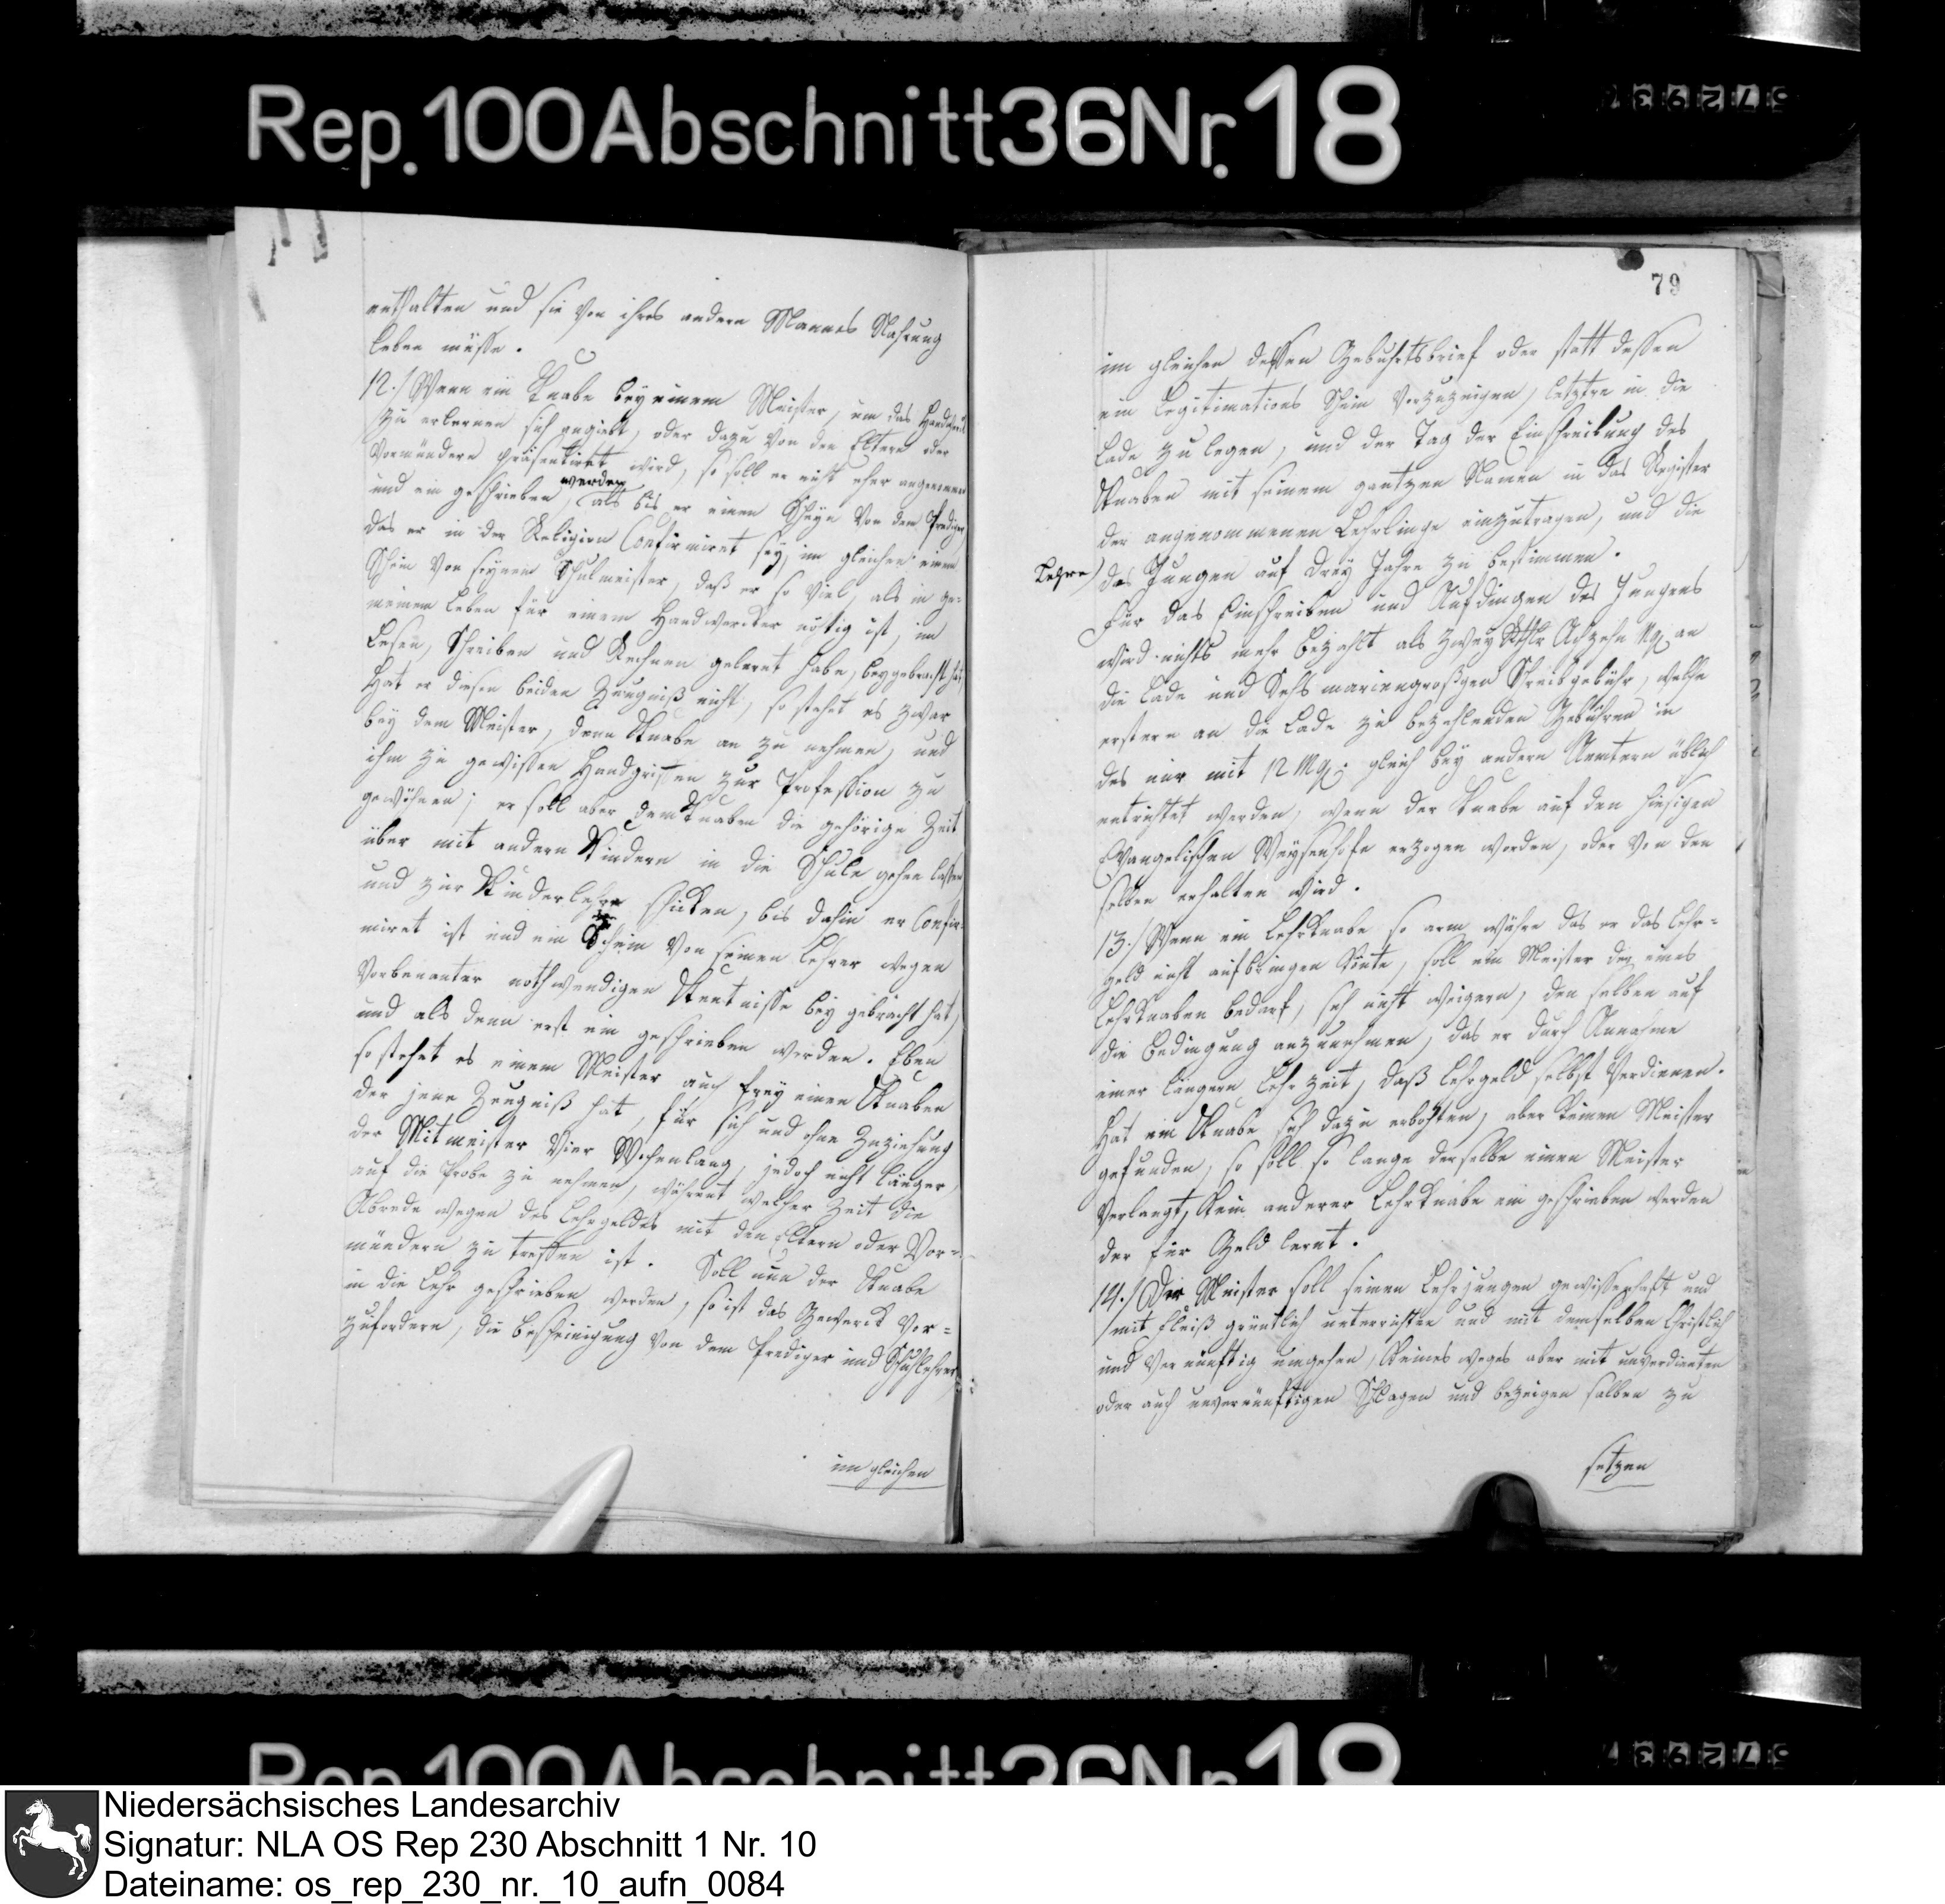 Rep. 100 Abschnitt 36 Nr. 18
enthalten und sie von ihres andern Mannes Nahrung
leben müsse.
12./ Wenn ein Knabe bey einem Meister, um das Handwerk
zu erlernen sich angiebt, oder dazu von den Eltern oder
Vormündern präsentiret wird, so soll er nicht eher angenommen
werden
und ein geschrieben, als bis er einen Schein von dem Prediger
das er in der Religion Confirmiret sey, im gleichen einen
Schein von seynem Schulmeister, daß er so viel, als im ge=
meinen Leben für einem Handwercker nötig ist, im
Lesen, Schreiben und Rechnen gelernt habe, beygebracht hat,
Hat er diesen beiden Zeugniß nicht, so stehet es zwar
bey dem Meister, denn Knabe an zu nehmen, und
ihm zu gewissen Handgriffen zur Profession zu
gewöhnen; er soll aber dem Knaben die gehörige Zeit
über mit andern Kindern in die Schule gehen lassen
und zur Kinderlehre schicken, bis dahin er Confir=
miret ist und ein Schein von seinen Lehrer wegen
Vorbenanter nothwendigen Kentnisse bey gebracht hat,
und als denn erst ein geschrieben werden. Eben
so stehet es einem Meister auch frey einen Knaben
der jene Zeugniß hat, für sich und ohne Zuziehung
der Mitmeister Vier Wochenlang, jedoch nicht länger,
auf die Probe zu nehmen, während welcher Zeit die
Abrede wegen des Lehrgeldes mit den Eltern oder Vor=
mündern zu treffen ist. Soll nun der Knabe
in die Lehr geschrieben werden, so ist das Gewerck vor=
zufordern, die Bescheinigung von dem Prediger und Schullehrer,
im gleichen
79
im gleichen dessen Geburtsbrief oder statt dessen
ein Legitimations Schein vorzuzeigen, letztre in die
Lade zu legen, und der Tag der Einschreibung des
Knaben mit seinem gantzen Namen in das Register
der angenommenen Lehrlinge einzutragen, und die
Lehre des Jungen auf drey Jahre zu bestimmen.
Für das Einschreiben und Aufdingen des Jungens
wird nichts mehr bezahlt als zwey Rthlr Achzehn Mg an
die Lade und Sechs mariengroschen Schreibgebühr, welche
erstern an die Lade zu bezahlenden Gebühren in
des nur mit 12 Mg: gleich bey andern Aemtern üblich
entrichtet werden, wenn der Knabe auf den hiesigen
Evangelischen Waysenhofe erzogen worden, oder von den
selben erhalten wird.
13./ Wenn ein Lehrknabe so arm währe das er das Lehr=
geld nicht aufbringen könte, soll ein Meister der eines
Lehrknaben bedarf, sich nicht weigern, den selben auf
die Bedingung anzunehmen, das er durch Annahme
einer längern Lehrzeit, daß Lehrgeld selbst verdienen.
Hat ein Knabe sich dazu erbohten, aber keinen Meister
gefunden, so soll so lange derselbe einen Meister
verlangt, kein anderer Lehrknabe ein geschrieben werden
der für Geld lernt.
14./ Der Meister soll seinen Lehrjungen gewissenhaft und
mit Fleiß gründlich unterrichten und mit demselben Christlich
und vernünftig umgehen, keines weges aber mit unverdienten
oder auch unvernünftigen Schlägen und bezeigen selben zu
setzen
Niedersächsisches Landesarchiv
Signatur: NLA OS Rep 230 Abschnitt 1 Nr. 10
Dateiname: os_rep_230_nr._10_aufn_0084